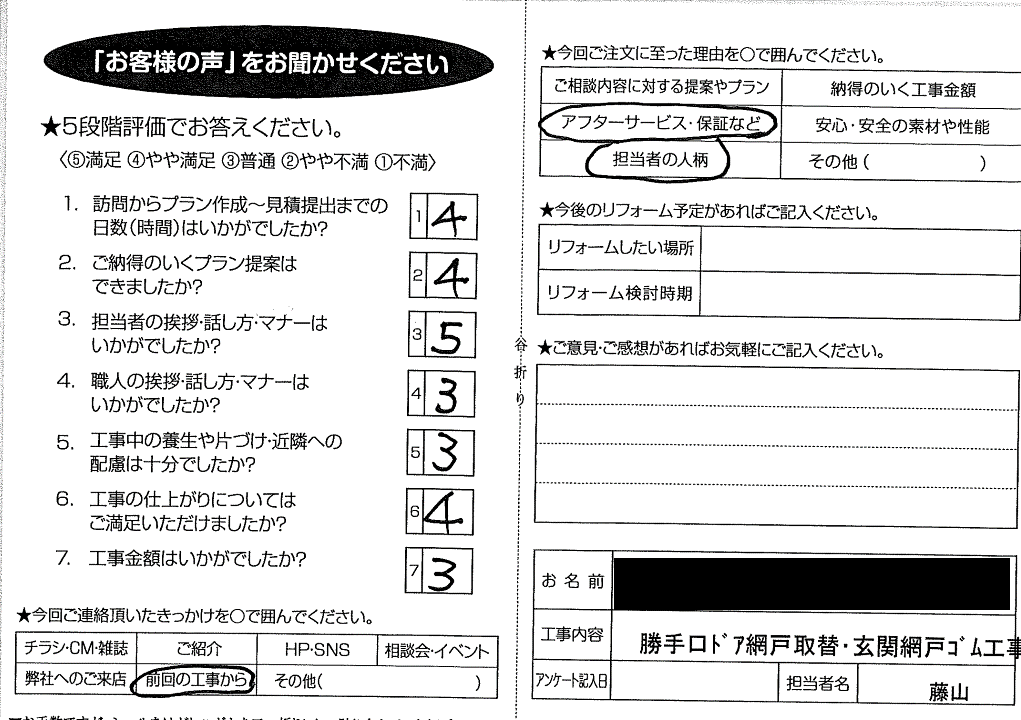 「お客様の声」をお聞かせください
★5段階評価でお答えください。
〈⑤満足 ④やや満足 ③普通 ②やや不満 ①不満〉
1. 訪問からプラン作成〜見積提出までの
日数(時間)はいかがでしたか?
1 4
2. ご納得のいくプラン提案は
できましたか?
2 4
3. 担当者の挨拶・話し方・マナーは
いかがでしたか?
3 5
4. 職人の挨拶・話し方・マナーは
いかがでしたか?
4 3
5. 工事中の養生や片づけ・近隣への
配慮は十分でしたか?
5 3
6. 工事の仕上がりについては
ご満足いただけましたか?
6 4
7. 工事金額はいかがでしたか?
7 3
★今回ご連絡頂いたきっかけを○で囲んでください。
チラシ・CM・雑誌 ご紹介 HP・SNS 相談会・イベント
弊社へのご来店 前回の工事から その他( )
谷折り
★今回ご注文に至った理由を○で囲んでください。
ご相談内容に対する提案やプラン 納得のいく工事金額
アフターサービス・保証など 安心・安全の素材や性能
担当者の人柄 その他( )
★今後のリフォーム予定があればご記入ください。
リフォームしたい場所
リフォーム検討時期
★ご意見・ご感想があればお気軽にご記入ください。
お名前
工事内容 勝手口ドア網戸取替・玄関網戸ゴム工事
アンケート記入日 担当者名 藤山